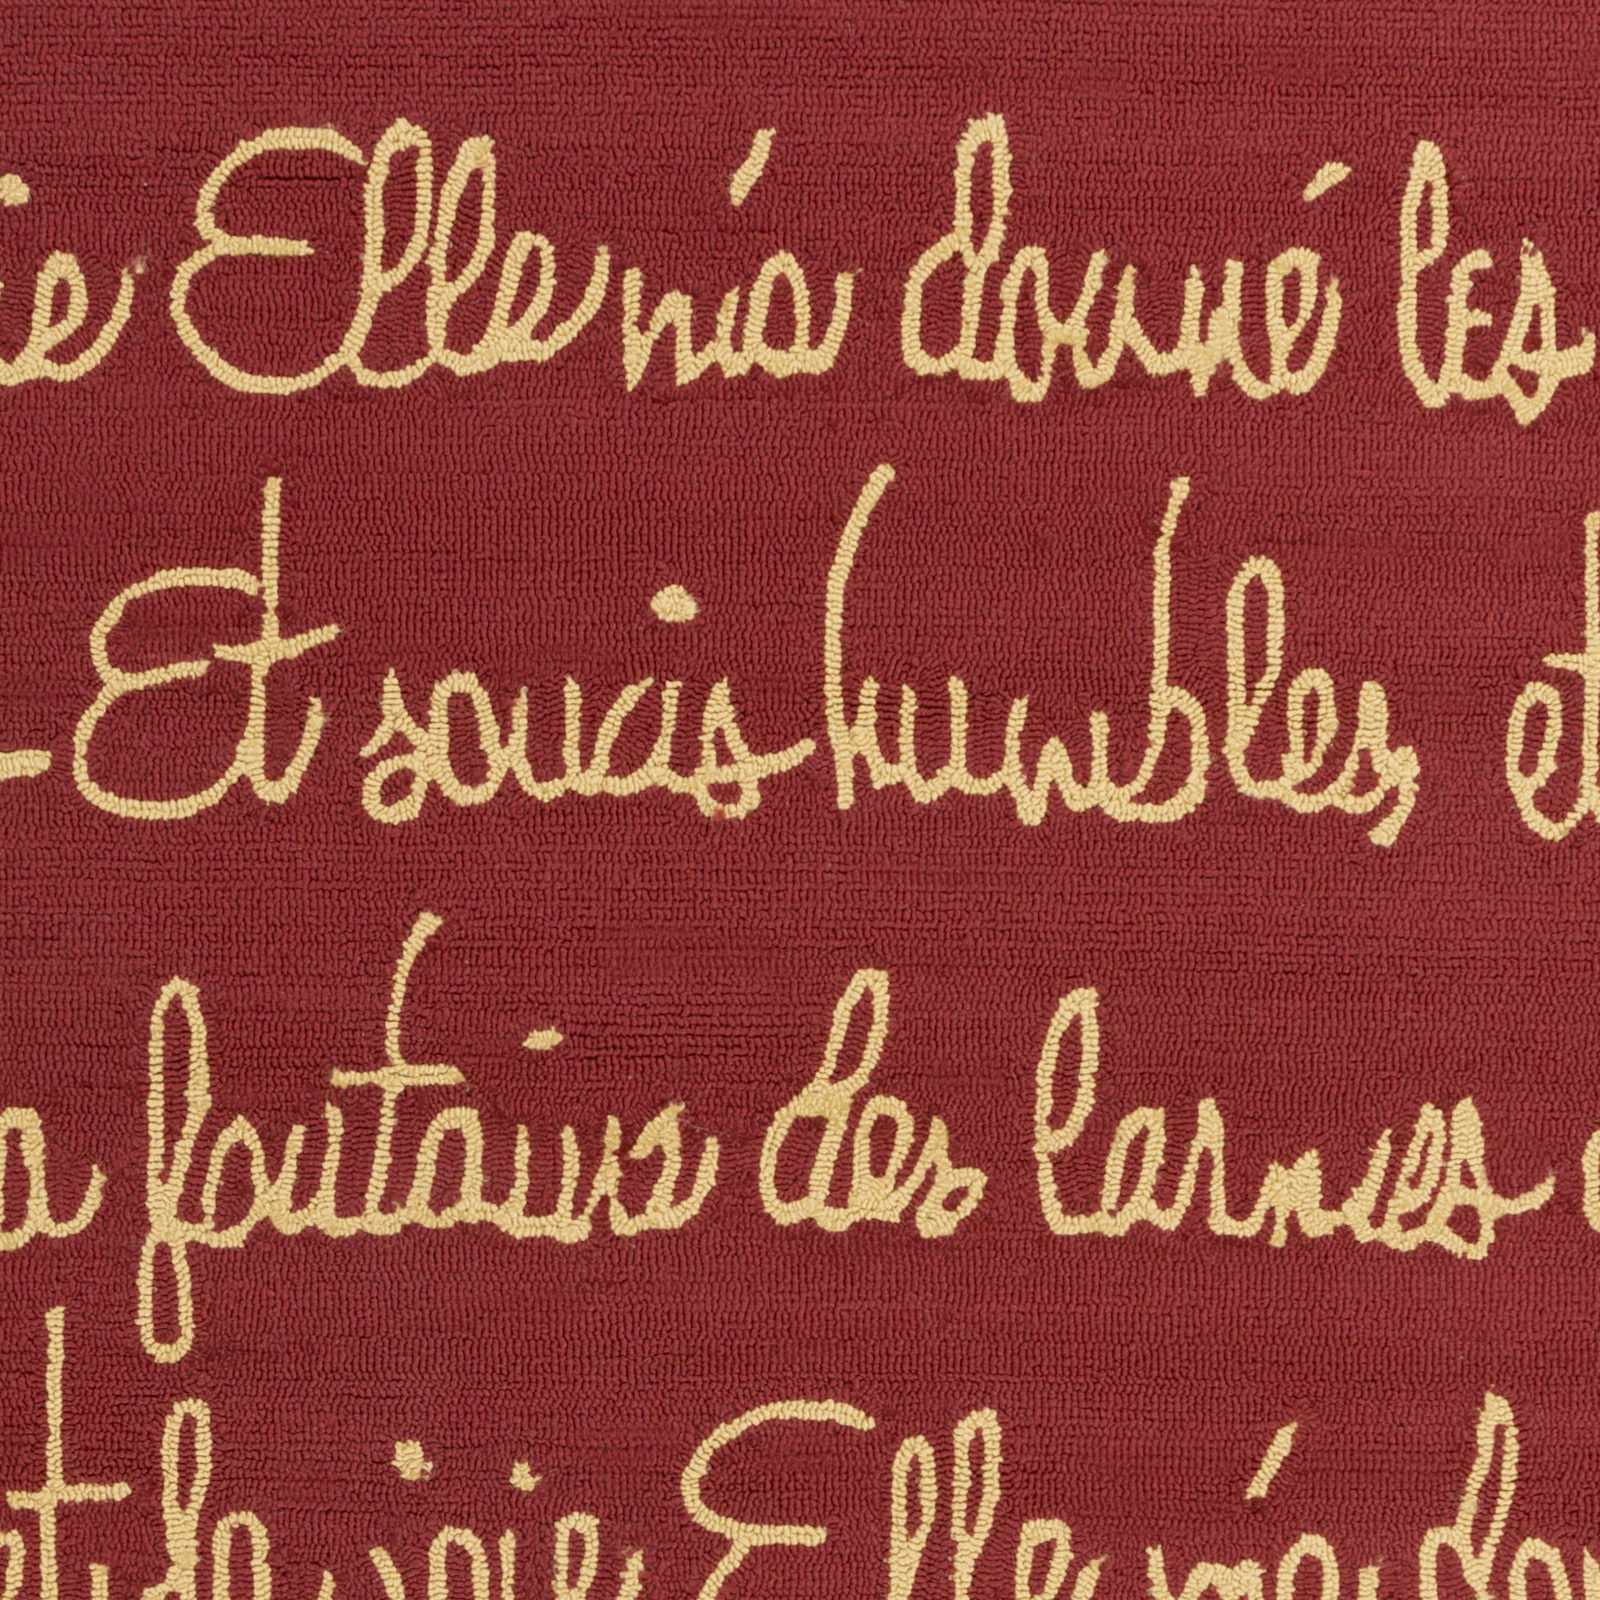 ie Elle m'a donné les
Et soucis humbles, et
a fontaine des larmes
et de joie Elle m'a don